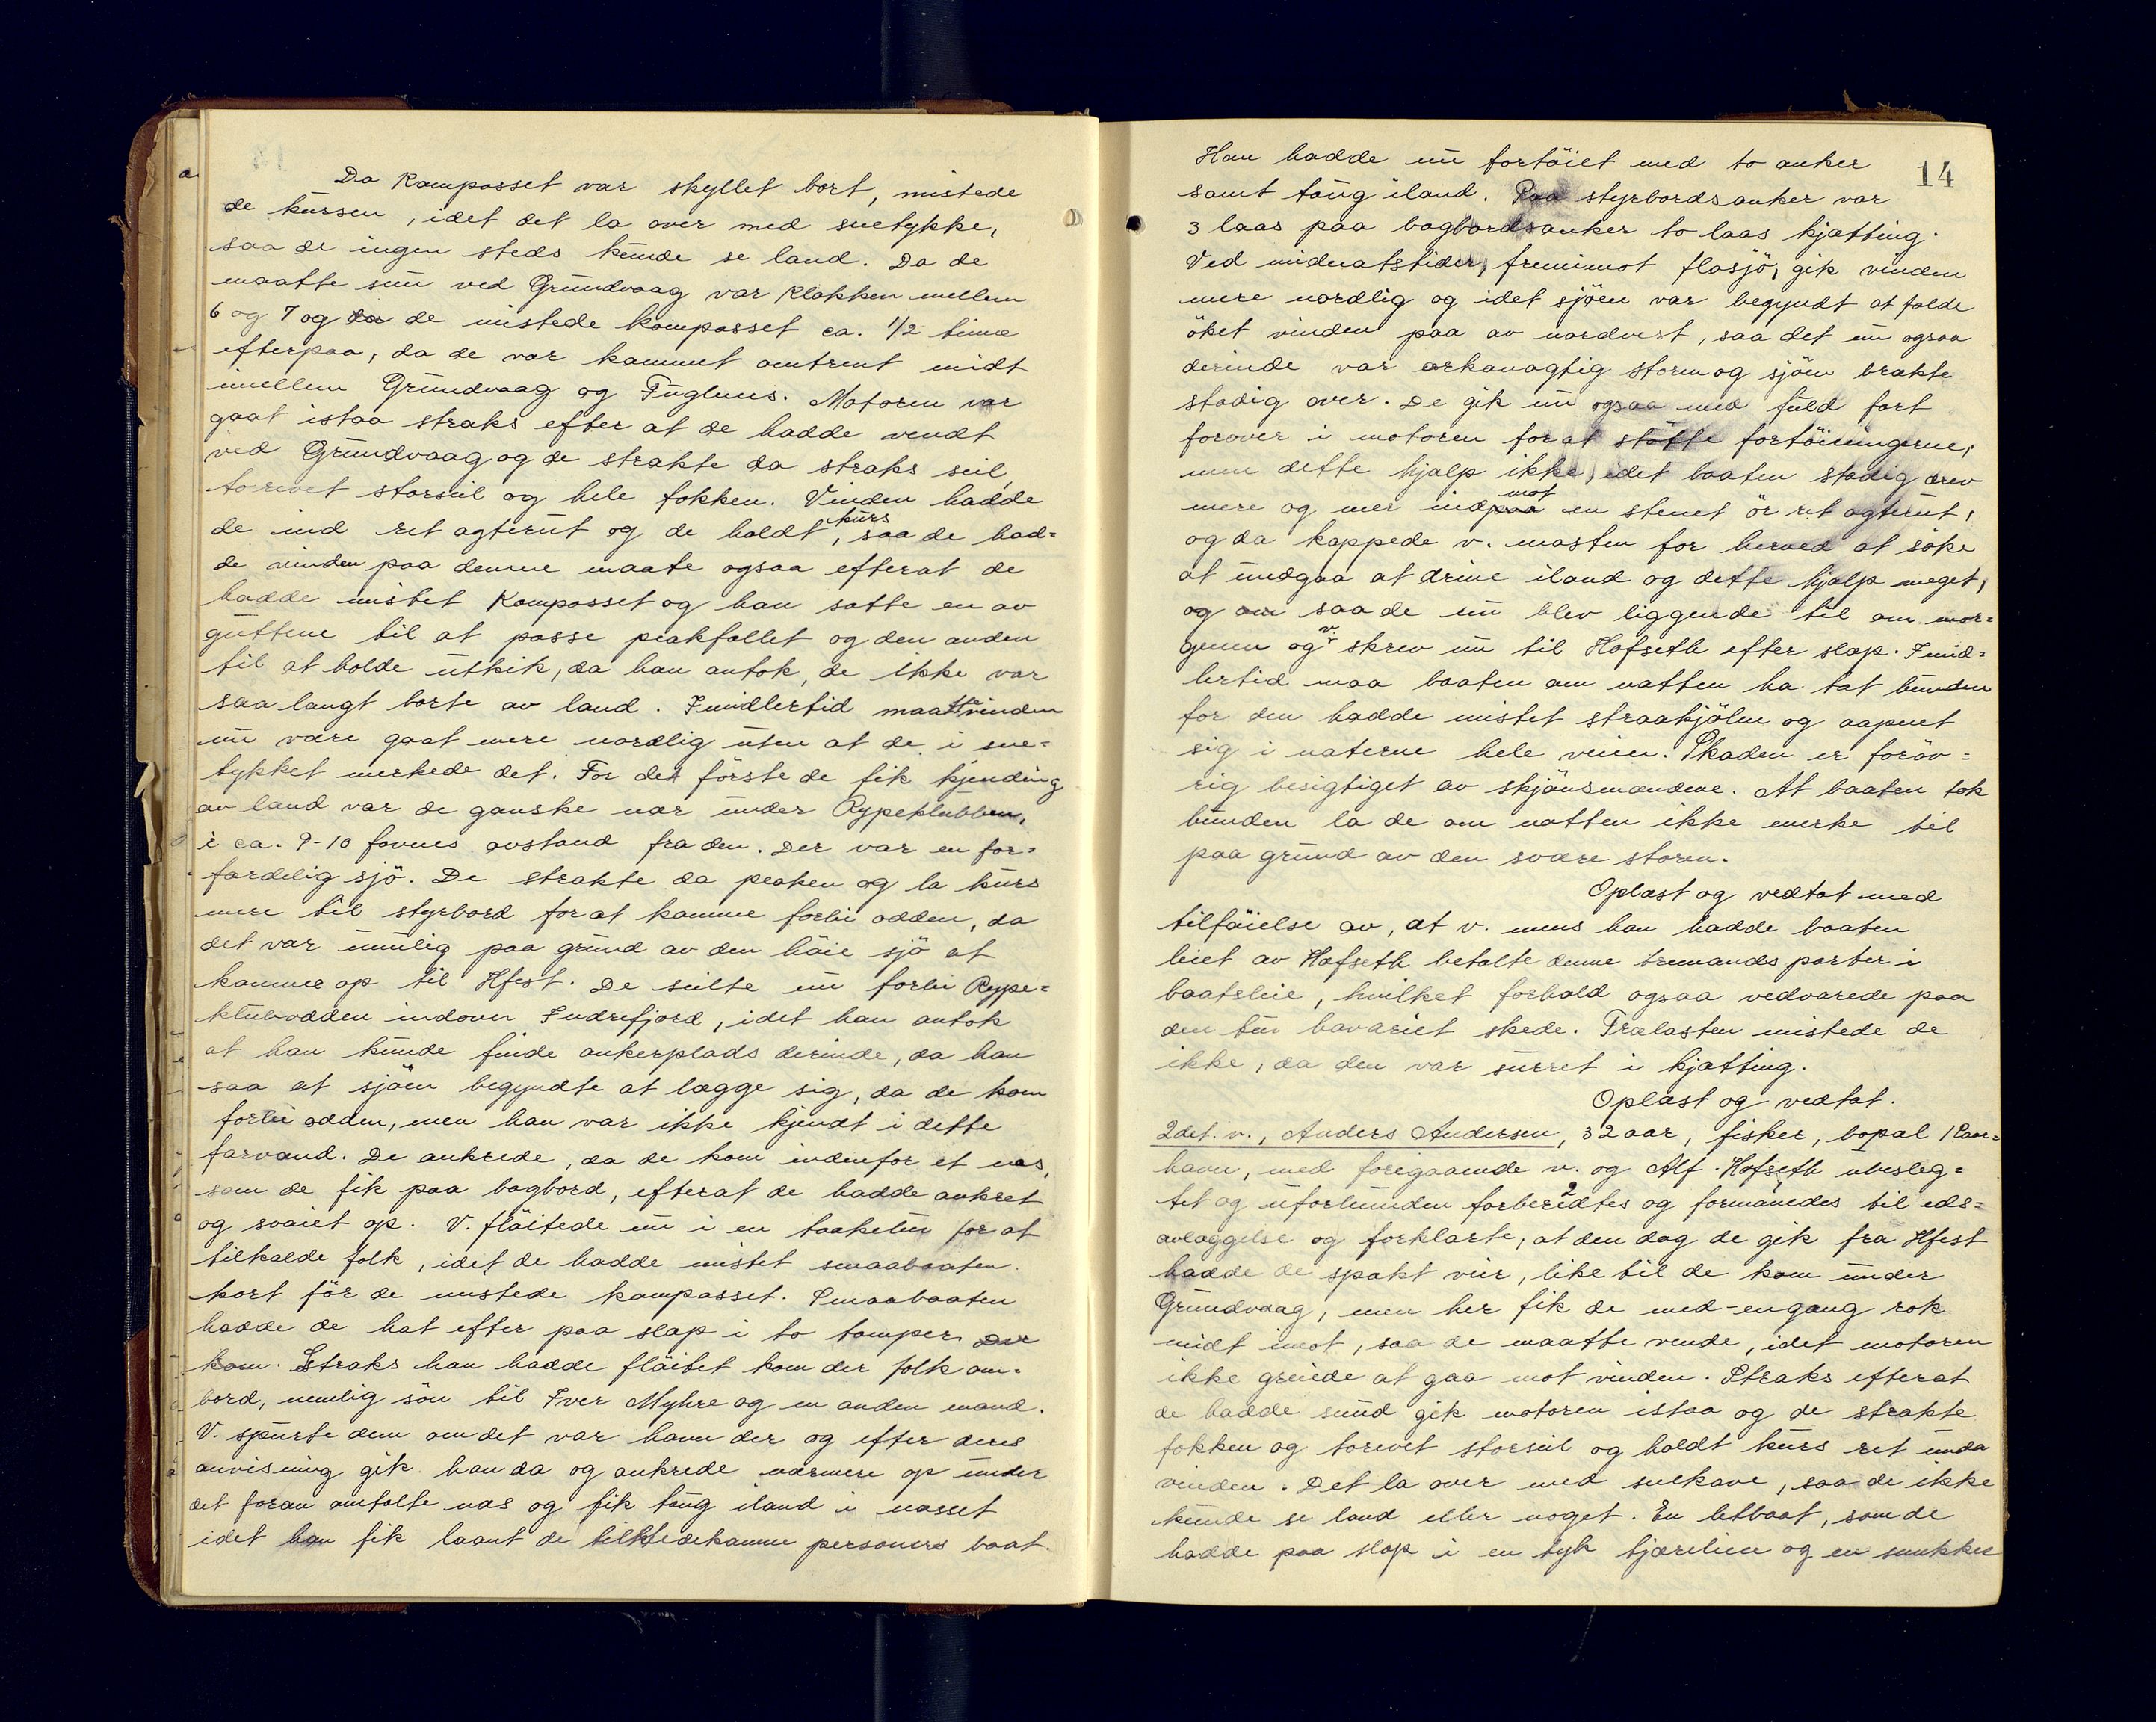 Da Kompasset var skyllet bort, mistede
de kursen, idet det la over med snetykke,
saa de ingen steds kunde se land. Da de
maatte snu ved Grundvaag var klokken mellem
6 og 7 og da de mistede kompasset ca. 1/2 time
efterpaa, da de var kommet omtrent midt
imellem Grundvaag og Fuglnes. Motoren var
gaat istaa straks efter at de hadde vendt
ved Grundvaag og de strakte da straks seil,
torevet storseil og hele fokken. Vinden hadde
de ind ret agterut og de holdt kurs, saa de had=
de vinden paa denne maate ogsaa efterat de
hadde mistet Kompasset og han satte en av
guttene til at passe peakfallet og den anden
til at holde utkik, da han antok, de ikke var
saa langt borte av land. Imidlertid maatte vinden
nu være gaat mere nordlig uten at de i sne=
tykket merkede det. For det første de fik kjending
av land var de ganske nær under Rypeklubben,
i ca. 9-10 favnes avstand fra den. Der var en for=
færdelig sjö. De strakte da peaken og la kurs
mere til styrbord for at komme forbi odden, da
det var umulig paa grund av den höie sjö at
komme op til Hfest. De seilte nu forbi Rype=
klubodden indover Indrefjord, idet han antok
at han kunde finde ankerplads derinde, da han
saa at sjöen begyndte at lægge sig, da de kom
forbi odden, men han var ikke kjendt i dette
farvand. De ankrede, da de kom indenfor et nes,
som de fik paa bagbord, efterat de hadde ankret
og svaiet op. V. flöitede nu i en taakelur for at
tilkalde folk, idet de hadde mistet smaabaaten
kort för de mistede kompasset. Smaabaaten
hadde de hat efter paa slæp i to tamper. Der
kom. Straks han hadde flöitet kom der folk om=
bord, nemlig sön til Iver Myhre og en anden mand.
V. spurte dem om det var havn der og efter deres
anvisning gik han da og ankrede nærmere op under
det foran omtalte nes og fik taug iland i nesset
idet han fik laant de tilstedekomne personers baat.
14
Han hadde nu fortöiet med to anker
samt taug iland. Paa styrbordsanker var
3 laas paa bagbordsanker to laas kjætting.
Ved midnatstider, fremimot flosjö, gik vinden
mere nordlig og idet sjöen var begyndt at falde
öket vinden paa av nordvest, saa det nu ogsaa
derinde var orkanagtig storm og sjöen brækte
stadig over. De gik nu ogsaa med fuld fart
forover i motoren for at stötte fortöiningerne,
men dette hjalp ikke, idet baaten stadig drev
mere og mer ind mot en stenet ör ret agterut,
og da kappede v. masten for herved at söke
at undgaa at drive iland og dette hjalp meget,
og om saa de nu blev liggende til om mor=
genen og v. skrev nu til Hofseth efter slæp. Imid=
lertid maa baaten om natten ha tat bunden
for den hadde mistet straakjölen og aapnet
sig i naterne hele veien. Skaden er foröv=
rig besigtiget av skjönsmændene. At baaten tok
bunden la de om natten ikke merke til
paa grund av den svære storm.
Oplæst og vedtat med
tilföielse av, at v. mens han hadde baaten
leiet av Hofseth betalte denne tremands parter i
baatsleie, hvilket forhold ogsaa vedvarede paa
den tur havariet skede. Trælasten mistede de
ikke, da den var surret i kjætting.
Oplæst og vedtat.
2det. v., Anders Andersen, 32 aar, fisker, bopæl Kaar=
havn, med foregaaende v. og Alf. Hofseth ubesleg=
tet og uforbunden forberedtes og formanedes til eds=
avlæggelse og forklarte, at den dag de gik fra Hfest
hadde de spakt veir, like til de kom under
Grundvaag, men her fik de med-engang rok
midt imot, saa de maatte vende, idet motoren
ikke greiede at gaa mot vinden. Straks efterat
de hadde snud gik motoren istaa og de strakte
fokken og torevet storseil og holdt kurs ret unda
vinden. Det la over med snekave, saa de ikke
kunde se land eller noget. En letbaat, som de
hadde paa slæp i en tyk tjærelien og en smekker